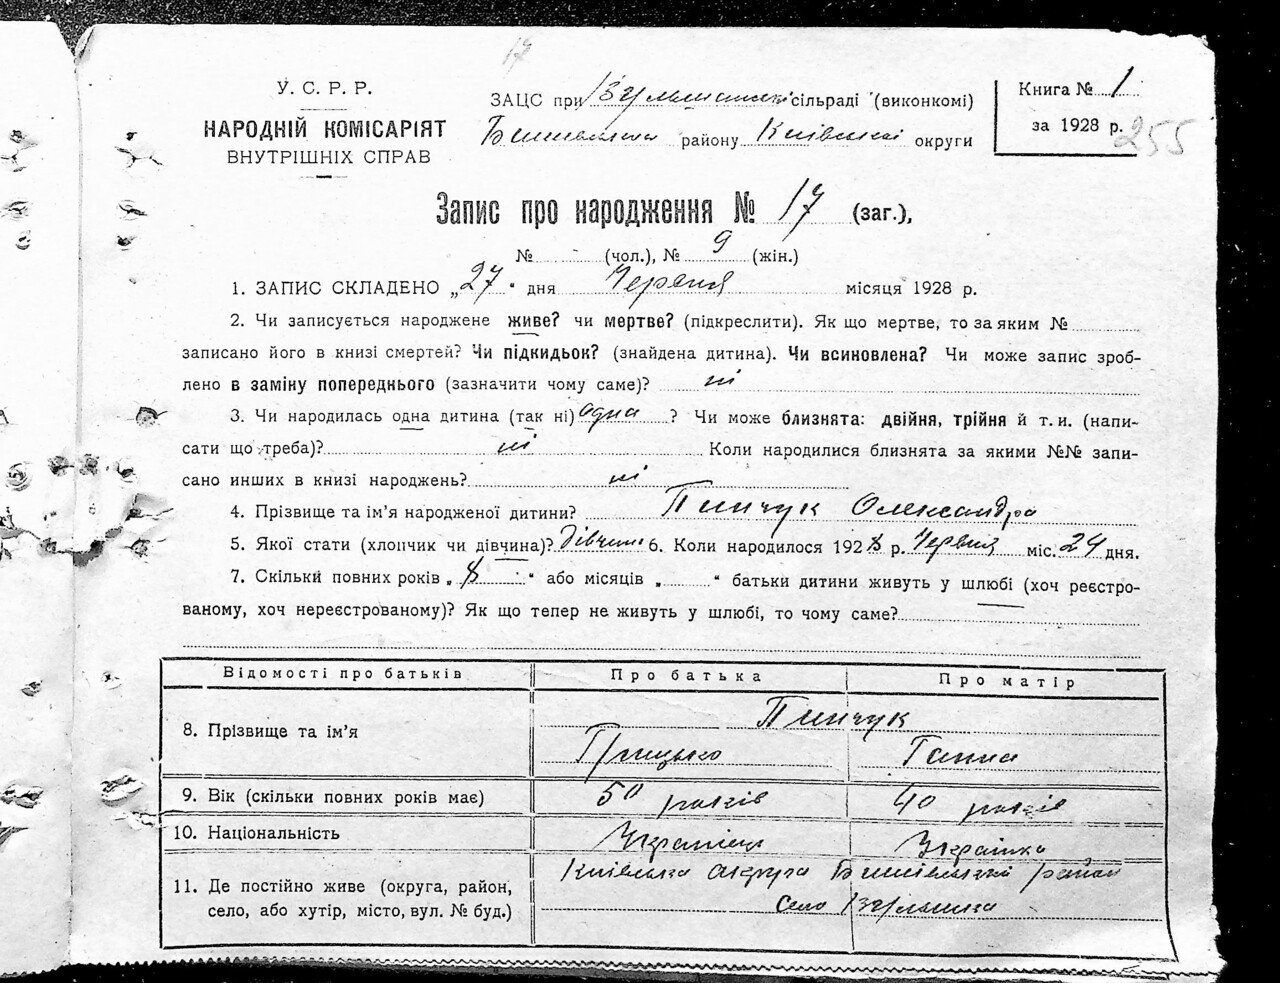 17
У. С. Р. Р.
НАРОДНІЙ КОМІСАРІЯТ
ВНУТРІШНІХ СПРАВ
ЗАЦС при сільраді (виконкомі)
району Київської округи
Книга № 1
за 1928 р.
255
Запис про народження № 17 (заг.),
№ - (чол.), № 9 (жін.)
1. ЗАПИС СКЛАДЕНО „27" дня Червня місяця 1928 р.
2. Чи записується народжене живе? чи мертве? (підкреслити). Як що мертве, то за яким №
записано його в книзі смертей? Чи підкидьок? (знайдена дитина). Чи всиновлена? Чи може запис зроб-
лено в заміну попереднього (зазначити чому саме)? ні
3. Чи народилась одна дитина (так ні) одна ? Чи може близнята: двійня, трійня й т. и. (напи-
сати що треба)? ні Коли народилися близнята за якими №№ запи-
сано инших в книзі народжень? ні
4. Прізвище та ім'я народженої дитини? Пинчук Олександра
5. Якої стати (хлопчик чи дівчина)? дівчина 6. Коли народилося 1928 р. Червня міс. 24 дня.
7. Скільки повних років „8" або місяців „ " батьки дитини живуть у шлюбі (хоч реєстро-
ваному, хоч нереєстрованому)? Як що тепер не живуть у шлюбі, то чому саме?
Відомості про батьків Про батька Про матір
8. Прізвище та ім'я Пинчук
Грицько Ганна
9. Вік (скільки повних років має) 50 років 40 років
10. Національність Українець Українка
11. Де постійно живе (округа, район, село, або хутір, місто, вул. № буд.) Київська округа район
село